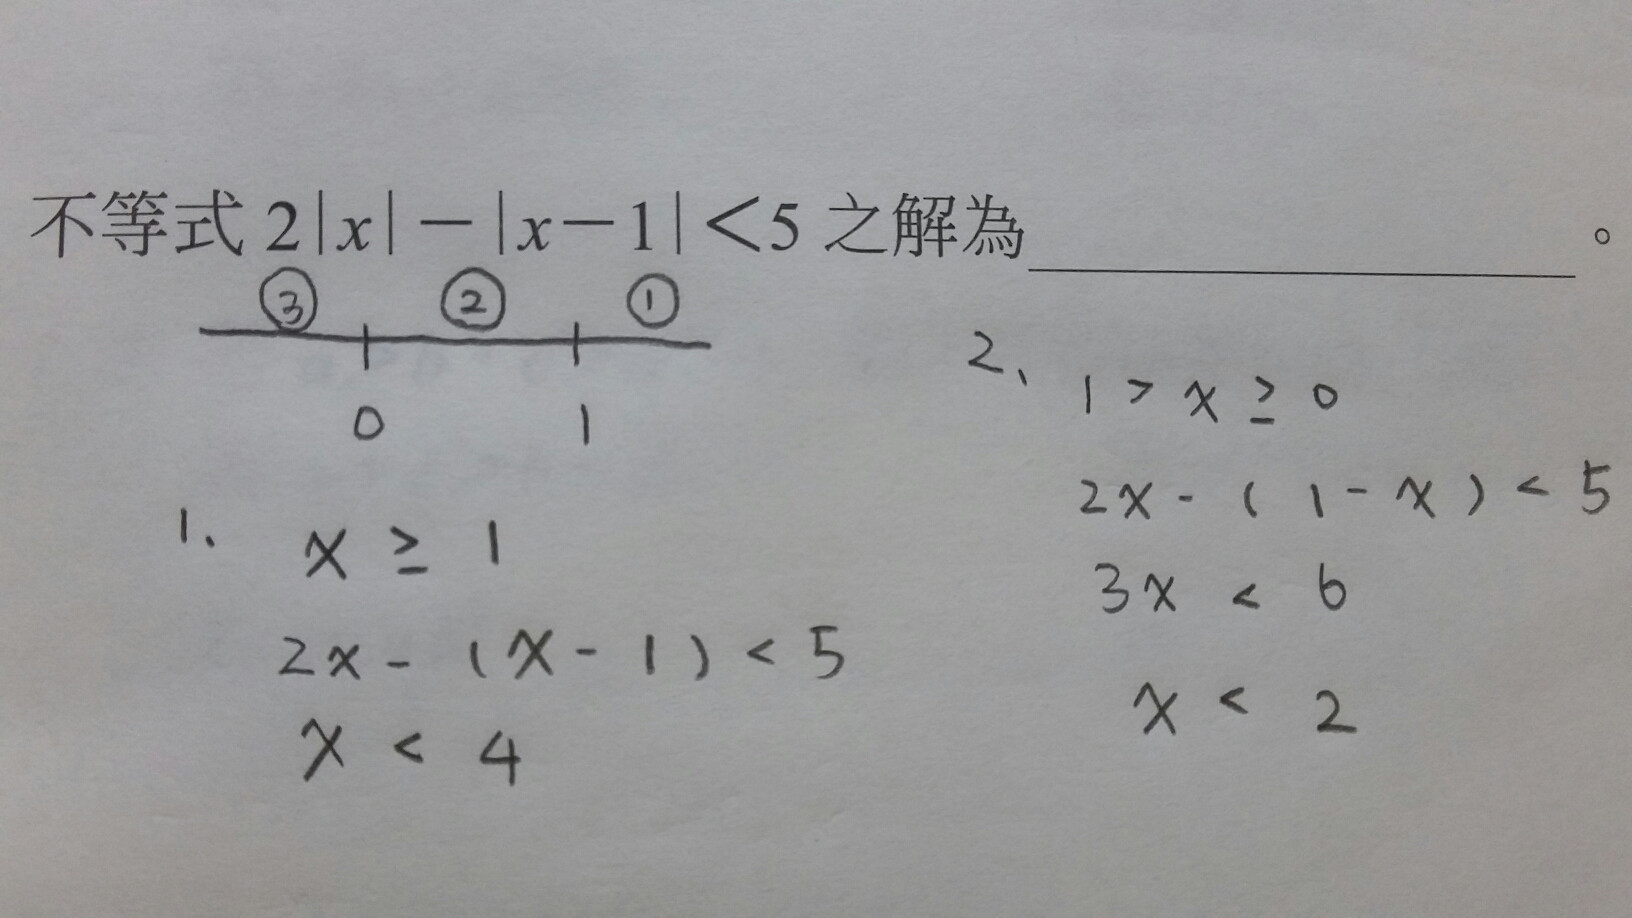 不等式 2|x|－|x－1|＜5 之解為＿＿＿＿＿＿＿＿。
③ ② ①
0 1
1、 x ≥ 1
2x - (x - 1) < 5
x < 4
2、 1 > x ≥ 0
2x - (1 - x) < 5
3x < 6
x < 2